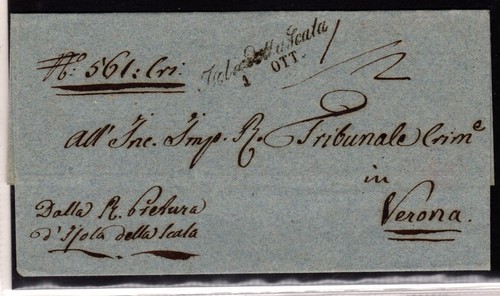 N.° 561: Cri:
Isola della Scala
1 OTT.
All' Inc. Imp. R. Tribunale Crim.e
in
Verona.
Dalla R. Pretura
d'Isola della Scala